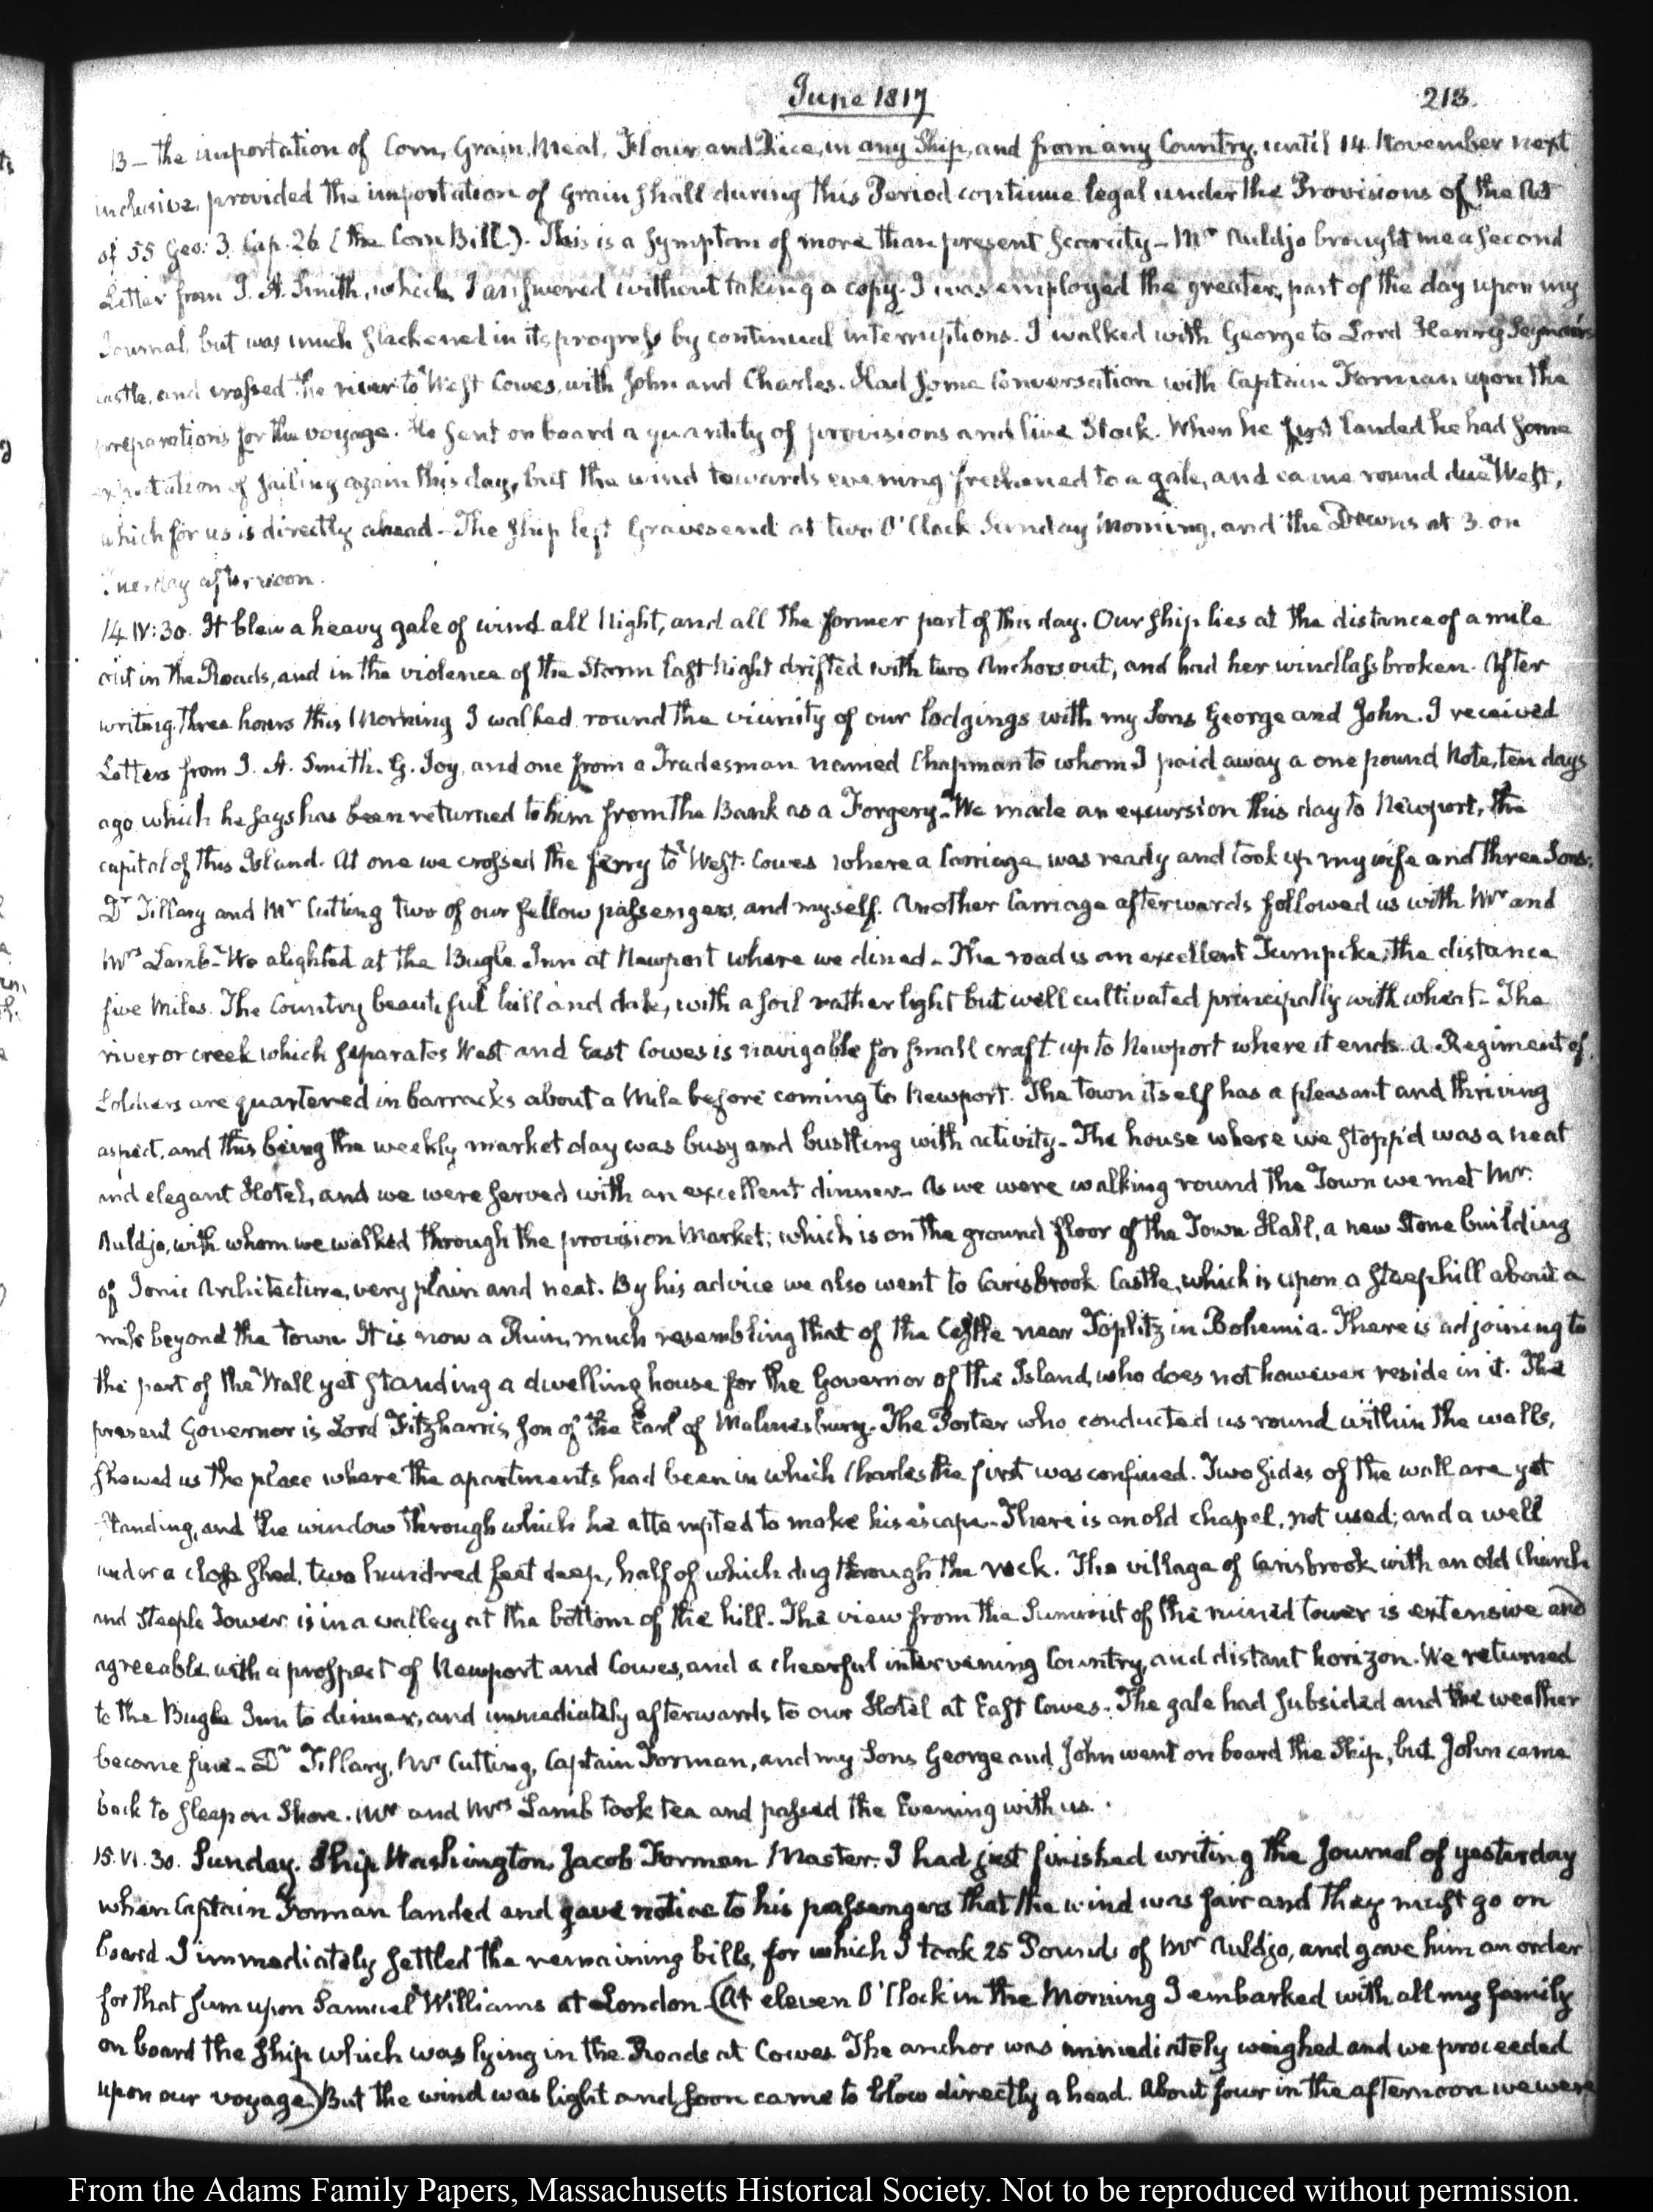 June 1817
213.
13 — the importation of Corn, Grain, Meal, Flour and Rice, in any Ship, and from any Country, until 14 November next
inclusive, provided the importation of Grain shall during this Period continue legal under the Provisions of the Act
of 55 Geo: 3. Cap. 26 (the Corn Bill). This is a symptom of more than present scarcity — Mr Auldjo brought me a second
Letter from J. A. Smith, which I answered without taking a copy. I was employed the greater part of the day upon my
Journal, but was much slackened in its progress by continual interruptions. I walked with George to Lord Henry Seymour's
castle, and crossed the river to West Cowes, with John and Charles. Had some Conversation with Captain Forman upon the
preparations for the voyage. He sent on board a quantity of provisions and live Stock. When he first landed he had some
expectation of sailing again this day, but the wind towards evening freshened to a gale, and came round due West,
which for us is directly ahead — The Ship left Gravesend at two O'Clock Sunday Morning, and the Downs at 3. on
Tuesday afternoon.
14. IV:30. It blew a heavy gale of wind all Night, and all the former part of this day. Our ship lies at the distance of a mile
out in the Roads, and in the violence of the Storm last Night drifted with two Anchors out, and had her windlass broken. After
writing three hours this Morning I walked round the vicinity of our lodgings with my Sons George and John. I received
Letters from J. A. Smith. G. Joy, and one from a Tradesman named Chapman to whom I paid away a one pound Note, ten days
ago which he says has been returned to him from the Bank as a Forgery — We made an excursion this day to Newport, the
capital of this Island. At one we crossed the ferry to West Cowes where a Carriage was ready and took up my wife and three Sons,
Dr Tillary and Mr Cutting two of our fellow passengers, and myself. Another Carriage afterwards followed us with Mr and
Mrs Lamb — We alighted at the Bugle Inn at Newport where we dined — The road is an excellent Turnpike, the distance
five Miles. The Country beautiful hill and dale, with a soil rather light but well cultivated principally with wheat — The
river or creek which separates West and East Cowes is navigable for small craft up to Newport where it ends. A Regiment of
Soldiers are quartered in barracks about a Mile before coming to Newport. The town itself has a pleasant and thriving
aspect, and this being the weekly market day was busy and bustling with activity — The house where we stopp'd was a neat
and elegant Hotel, and we were served with an excellent dinner — As we were walking round the Town we met Mr.
Auldjo, with whom we walked through the provision Market; which is on the ground floor of the Town Hall, a new Stone building
of Ionic Architecture, very plain and neat. By his advice we also went to Carisbrook Castle, which is upon a steep hill about a
mile beyond the town. It is now a Ruin, much resembling that of the Castle near Töplitz in Bohemia. There is adjoining to
the part of the Wall yet standing a dwelling house for the Governor of the Island, who does not however reside in it. The
present Governor is Lord Fitzharris, son of the Earl of Malmesbury — The Porter who conducted us round within the walls,
shewed us the place where the apartments had been in which Charles the first was confined. Two sides of the wall are yet
standing, and the window through which he attempted to make his escape — There is an old chapel, not used; and a well
under a close shed, two hundred feet deep, half of which dug through the rock. The village of Carisbrook with an old Church
and Steeple Tower is in a valley at the bottom of the hill. The view from the Summit of the ruined tower is extensive and
agreeable with a prospect of Newport and Cowes, and a cheerful intervening Country, and distant horizon. We returned
to the Bugle Inn to dinner, and immediately afterwards to our Hotel at East Cowes. The gale had subsided and the weather
become fine — Dr Tillary, Mr Cutting, Captain Forman, and my Sons George and John went on board the Ship, but John came
back to sleep on Shore. Mr and Mrs Lamb took tea and passed the Evening with us.
15. VI. 30. Sunday. Ship Washington, Jacob Forman Master. I had just finished writing the Journal of yesterday
when Captain Forman landed and gave notice to his passengers that the wind was fair and they must go on
board. I immediately settled the remaining bills, for which I took 25 Pounds of Mr Auldjo, and gave him an order
for that sum upon Samuel Williams at London (At eleven O'Clock in the Morning I embarked with all my family
on board the ship which was lying in the Roads at Cowes. The anchor was immediately weighed and we proceeded
upon our voyage.) But the wind was light and soon came to blow directly ahead. About four in the afternoon we were
From the Adams Family Papers, Massachusetts Historical Society. Not to be reproduced without permission.